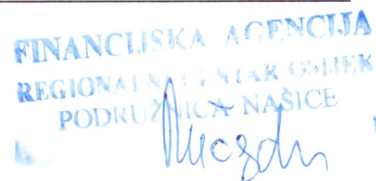 FINANCIJSKA AGENCIJA
REGIONALNI CENTAR OSIJEK
PODRUŽNICA NAŠICE